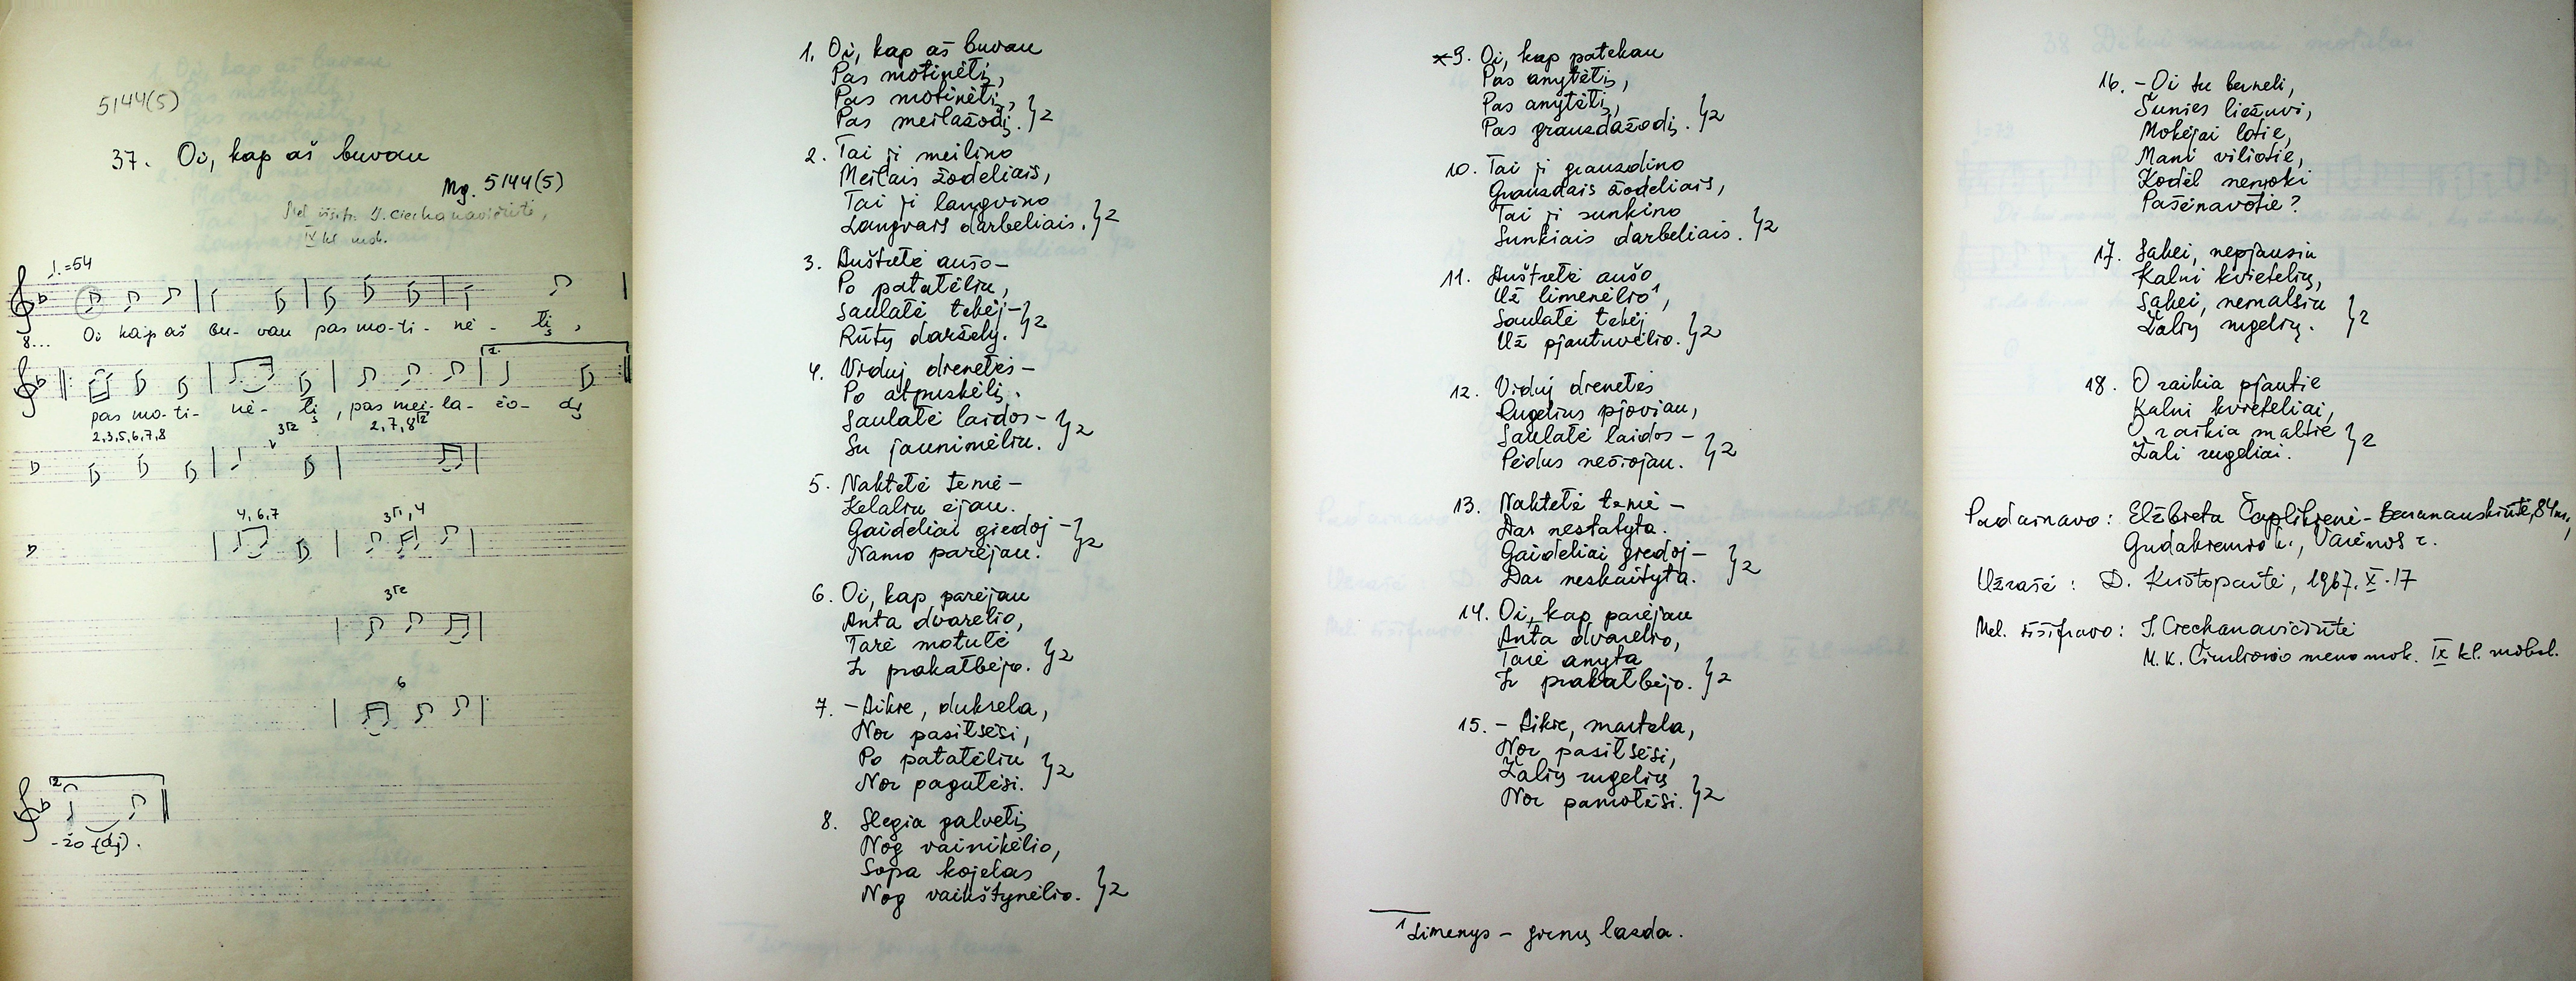 5144(5)
37. Oi, kap aš buvau
Mg. 5144(5)
Mel išifr. J. Ciechanavičiūtė,
IX kl mok.
♩.=54
8...
Oi kaip aš bu- vau pas mo-ti- nė- lį,
1.
pas mo-ti- nė- lį, pas mei-la- žo- dį
2,3,5,6,7,8
2,7,8
4,6,7
6
2.
-žo-(dį).
1. Oi, kap aš buvau
Pas motinėlį,
Pas motinėlį,
Pas meilažodį. }2
2. Tai ji meilino
Meilais žodeliais,
Tai ji langvino
Langvais darbeliais. }2
3. Aušrelė aušo–
Po patalėliu,
Saulalė tekėj– }2
Rūtų daržely.
4. Viduj dienelės–
Po atpuskėlį.
Saulalė laidos– }2
Su jaunimėliu.
5. Naktelė temė–
Kelaliu ėjau.
Gaideliai giedoj– }2
Namo parėjau.
6. Oi, kap parėjau
Anta dvarelio,
Tarė motulė }2
Ir prakalbėjo.
7. –Aikre, dukrela,
Nor pasilsėsi,
Po patalėliu }2
Nor pagulėsi.
8. Slegia galvelį
Nog vainikėlio,
Sopa kojelas
Nog vaikštynėlio. }2
9. Oi, kap patekau
Pas anytėlį,
Pas anytėlį, }2
Pas grauzdažodį.
10. Tai ji grauzdino
Grauzdais žodeliais,
Tai ji sunkino }2
Sunkiais darbeliais.
11. Aušrelė aušo
Už limenėlio¹,
Saulalė tekėj }2
Už pjautuvėlio.
12. Viduj dienelės
Rugelius pjoviau,
Saulalė laidos– }2
Pėdus nešiojau.
13. Naktelė temė–
Dar nestatyta.
Gaideliai giedoj– }2
Dar neskaityta.
14. Oi, kap parėjau
Anta dvarelio,
Tarė anyta }2
Ir prakalbėjo.
15. – Aikre, martela,
Nor pasilsėsi,
Žalių rugelių }2
Nor pamalėsi.
¹Limenys – girnų lazda.
16. –Oi tu berneli,
Šunies liežuvi,
Mokėjai lotie,
Mani viliotie,
Kodėl nemoki
Pašėnavotie?
17. Sakei, nepjausiu
Kalni kvietelių,
Sakei, nemalsiu }2
Žalių rugelių.
18. O raikia pjautie
Kalni kvieteliai,
O raikia maltie }2
Žali rugeliai.
Padainavo: Elžbieta Čaplikienė-Baranauskiūtė, 84 m.,
Gudakiemio k., Varėnos r.
Užrašė: D. Krištopaitė, 1967.X.17
Mel. išifravo: J. Ciechanavičiūtė
M. K. Čiurlionio meno mok. IX kl. moksl.